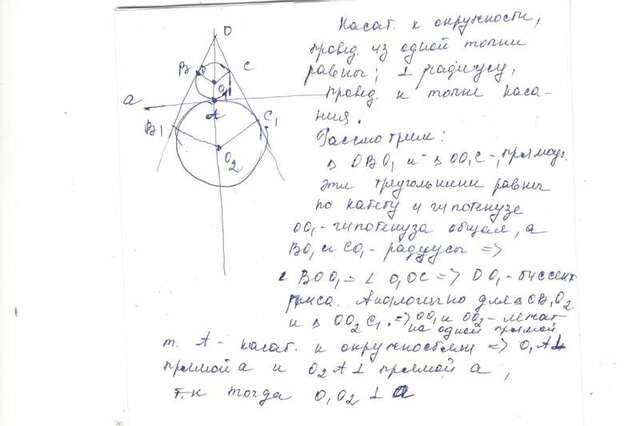 Касат. к окружности,
провед. из одной точки
равны; ⊥ радиусу,
провед. к точке каса-
ния.
Рассмотрим:
Δ OBO₁ и Δ OO₁C - прямоуг.
эти треугольники равны
по катету и гипотенузе
OO₁ - гипотенуза общая, а
BO₁ и CO₁ - радиусы =>
∠ BOO₁ = ∠ O₁OC => OO₁ - биссект
риса. Аналогично для Δ OB₁O₂
и Δ OO₂C₁. => OO₁ и OO₂ - лежат
на одной прямой
т. A - касат. к окружностям => O₁A⊥
прямой a и O₂A⊥ прямой a,
т.к тогда O₁O₂ ⊥ a
O
B
C
O₁
a
A
B₁
C₁
O₂